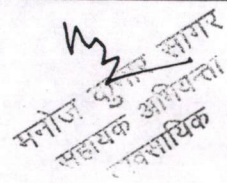 मनोज कुमार सागर
सहायक अभियन्ता
व्यवसायिक